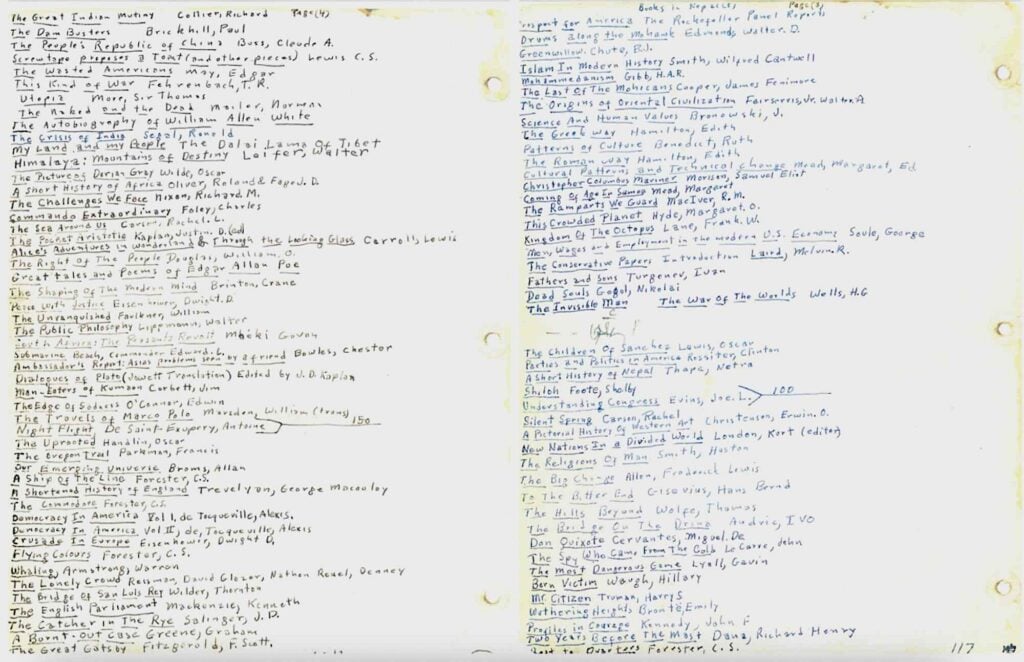 The Great Indian Mutiny Collier, Richard Page (4)
The Dam Busters Brickhill, Paul
The People's Republic of China Buss, Claude A.
Screwtape proposes a Toast (and other pieces) Lewis C.S.
The Wasted Americans May, Edgar
This Kind of War Fehrenbach, T.R.
Utopia More, Sir Thomas
The Naked and the Dead Mailer, Norman
The Autobiography of William Allen White
The Crisis of India Segal, Ronald
My Land and my People The Dalai Lama Of Tibet
Himalaya: Mountains of Destiny Loifer, Walter
The Picture of Dorian Gray Wilde, Oscar
A Short History of Africa Oliver, Roland & Fage J.D.
The Challenges We Face Nixon, Richard M.
Commando Extraordinary Foley, Charles
The Sea Around Us Carson, Rachel. L.
The Pocket Aristotle Kaplan, Justin. D. (ed)
Alice's Adventures in Wonderland & Through the Looking Glass Carroll, Lewis
The Right of The People Douglas, William, O.
Great tales and Poems of Edgar Allan Poe
The Shaping Of The Modern Mind Brinton, Crane
Peace With Justice Eisenhower, Dwight. D.
The Unvanquished Faulkner, William
The Public Philosophy Lippmann, Walter
South Africa: The Peasants Revolt Mbeki Govan
Submarine Beach, Commander Edward. L.
Ambassador's Report: Asias problems seen by a friend Bowles, Chester
Dialogues of Plato (Jowett Translation) Edited by J.D. Kaplan
Man-Eaters of Kumaon Corbett, Jim
The Edge Of Sadness O'Connor, Edwin
The Travels of Marco Polo Marsden, William (trans)
Night Flight De Saint-Exupery, Antoine 150
The Uprooted Handlin, Oscar
The Oregon Trail Parkman, Francis
Our Emerging Universe Broms, Allan
A Ship Of The Line Forester, C.S.
A Shortened History of England Trevelyan, George Macaulay
The Commodore Forester, C.S.
Democracy In America Vol I, de Tocqueville, Alexis.
Democracy In America Vol II, de, Tocqueville, Alexis
Crusade In Europe Eisenhower, Dwight D.
Flying Colours Forester, C. S.
Whaling, Armstrong, Warren
The Lonely Crowd Reisman, David Glazer, Nathan Reuel, Denney
The Bridge Of San Luis Rey Wilder, Thornton
The English Parliament Mackenzie, Kenneth
The Catcher in The Rye Salinger, J.D.
A Burnt-Out Case Greene, Graham
The Great Gatsby Fitzgerald, F. Scott.
Books in Nepal(2) Page (3)
rospect for America The Rockefeller Panel Reports
Drums along the Mohawk Edmonds, Walter. D.
Greenwillow. Chute, B.J.
Islam In Modern History Smith, Wilfred Cantwell
Mohammedanism Gibb, H.A.R.
The Last Of The Mohicans Cooper, James Fenimore
The Origins of Oriental Civilization Fairservis, Jr. Walter. A
Science And Human Values Bronowski, J.
The Greek Way Hamilton, Edith
Patterns of Culture Benedict, Ruth
The Roman Way Hamilton, Edith
Cultural Patterns and Technical Change Mead, Margaret, Ed
Christopher Columbus Mariner Morison, Samuel Eliot
Coming Of Age In Samoa Mead, Margaret
The Ramparts We Guard MacIver, R.M.
This Crowded Planet Hyde, Margaret. O.
Kingdom Of The Octopus Lane, Frank. W.
Men, Wages and Employment in the modern U.S. Economy Soule, George
The Conservative Papers Introduction Laird, Melvin. R.
Fathers and Sons Turgenev, Ivan
Dead Souls Gogol, Nikolai
The Invisible Man The War Of The Worlds Wells, H.G
The Children Of Sanchez Lewis, Oscar
Parties and Politics in America Rossiter, Clinton
A Short History of Nepal Thapa, Netra
Shiloh Foote, Shelby
Understanding Congress Evins, Joe. L. 100
Silent Spring Carson, Rachel
A Pictorial History Of Western Art Christensen, Erwin. O.
New Nations In a Divided World London, Kurt (editor)
The Religions Of Man Smith, Huston
The Big Change Allen, Frederick Lewis
To The Bitter End Gisevius, Hans Bernd
The Hills Beyond Wolfe, Thomas
The Bridge On The Drina Andric, IVO
Don Quixote Cervantes, Miguel. De
The Spy Who Came From The Cold Le Carre, John
The Most Dangerous Game Lyall, Gavin
Born Victim Waugh, Hillary
Mr Citizen Truman, Harry S
Wuthering Heights Brontë, Emily
Profiles in Courage Kennedy, John F
Two Years Before The Mast Dana, Richard Henry
Beat to Quarters Forester, C. S. 117